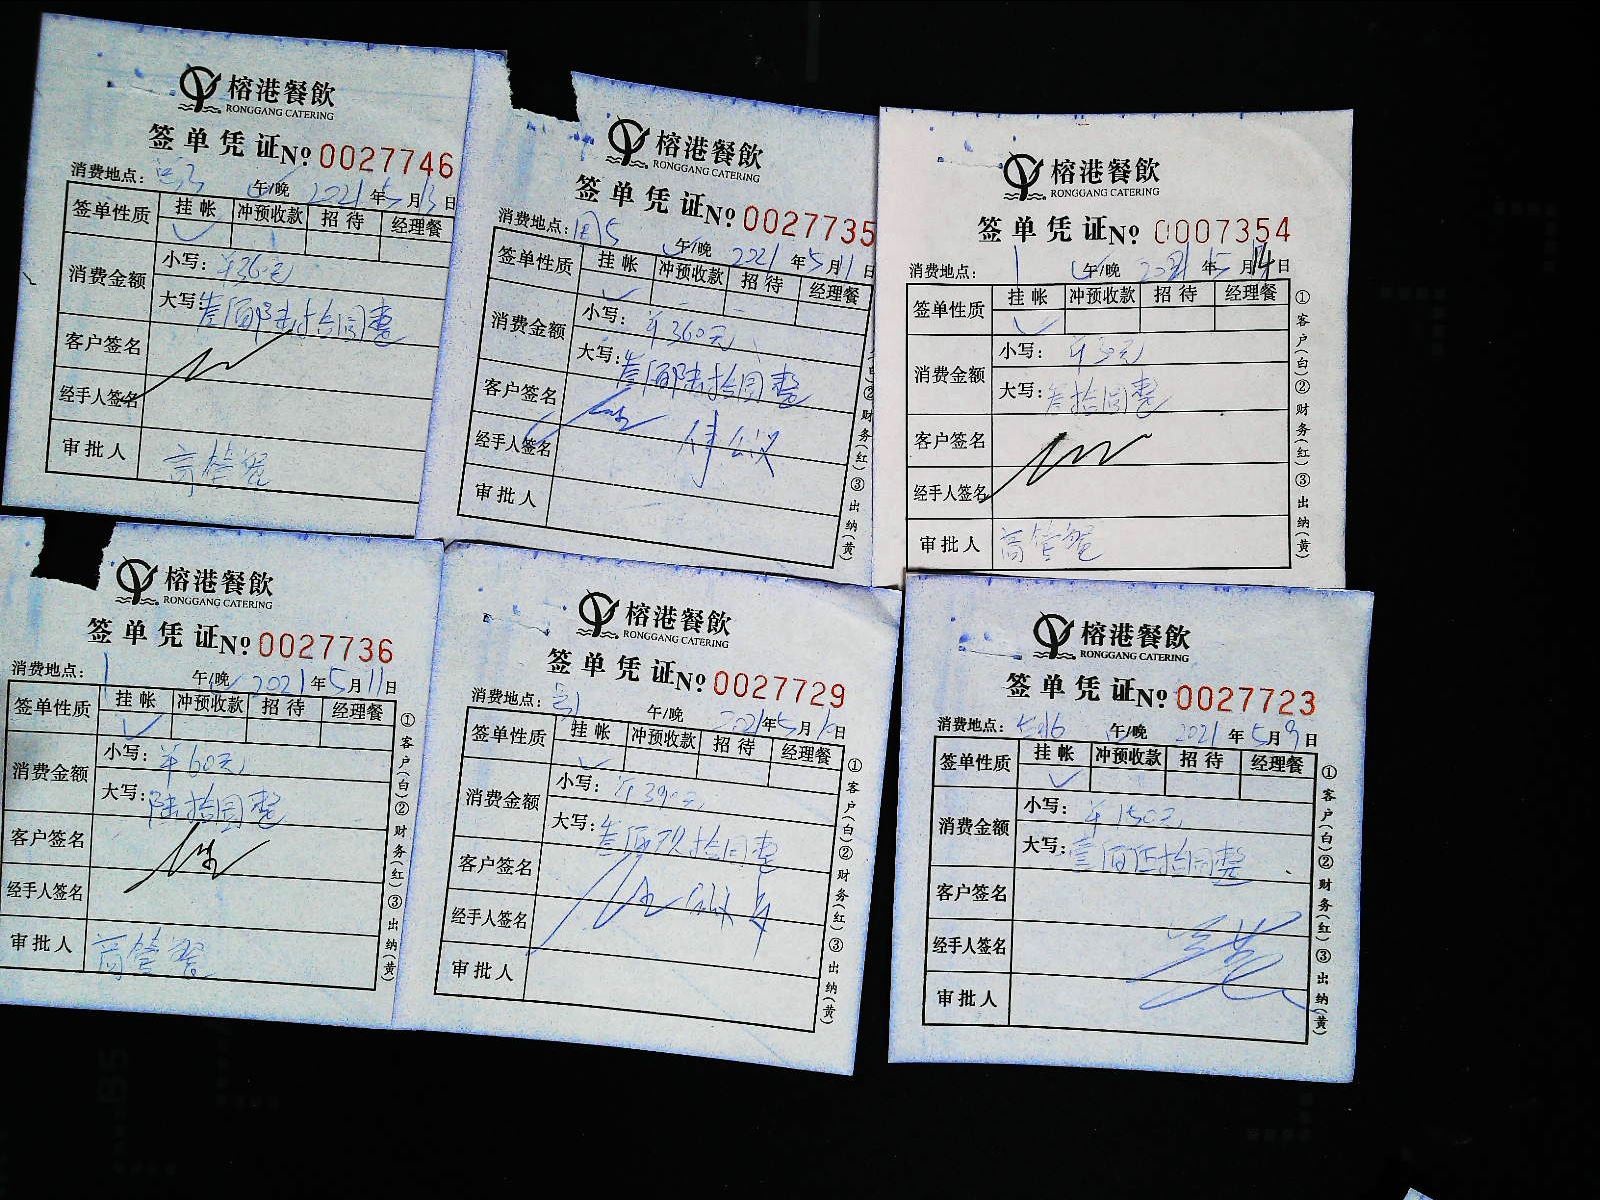 榕港餐飲
RONGGANG CATERING
签单凭证 Nº 0027746
消费地点: 午/晚 2021年5月13日
签单性质 挂帐 冲预收款 招待 经理餐
消费金额 小写: ¥360元
大写: 叁佰陆拾圆整
客户签名
经手人签名
审批人
榕港餐飲
RONGGANG CATERING
签单凭证 Nº 0027735
消费地点: 午/晚 2021年5月11日
签单性质 挂帐 冲预收款 招待 经理餐
消费金额 小写: ¥360元
大写: 叁佰陆拾圆整
客户签名
经手人签名
审批人
②财务(红)③出纳(黄)
榕港餐飲
RONGGANG CATERING
签单凭证 Nº 0007354
消费地点: 1 午/晚 2021年5月14日
签单性质 挂帐 冲预收款 招待 经理餐
消费金额 小写: ¥30元
大写: 叁拾圆整
客户签名
经手人签名
审批人
①客户(白)②财务(红)③出纳(黄)
榕港餐飲
RONGGANG CATERING
签单凭证 Nº 0027736
消费地点: 1 午/晚 2021年5月11日
签单性质 挂帐 冲预收款 招待 经理餐
消费金额 小写: ¥60元
大写: 陆拾圆整
客户签名
经手人签名
审批人
①客户(白)②财务(红)③出纳(黄)
榕港餐飲
RONGGANG CATERING
签单凭证 Nº 0027729
消费地点: 午/晚 2021年5月10日
签单性质 挂帐 冲预收款 招待 经理餐
消费金额 小写: ¥390元
大写: 叁佰玖拾圆整
客户签名
经手人签名
审批人
①客户(白)②财务(红)③出纳(黄)
榕港餐飲
RONGGANG CATERING
签单凭证 Nº 0027723
消费地点: 午/晚 2021年5月9日
签单性质 挂帐 冲预收款 招待 经理餐
消费金额 小写: ¥150元
大写: 壹佰伍拾圆整
客户签名
经手人签名
审批人
①客户(白)②财务(红)③出纳(黄)